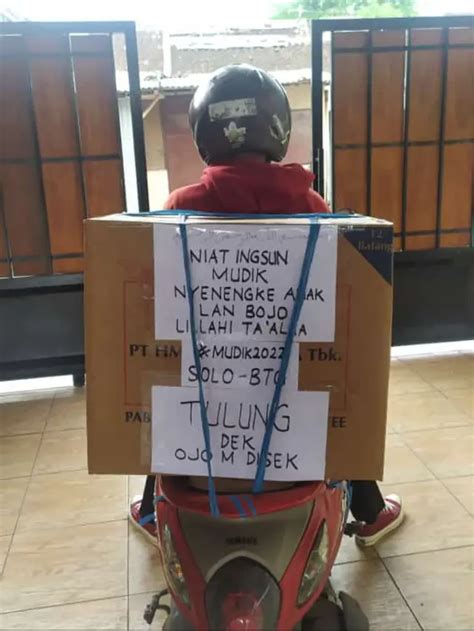 12
Batang
NIAT INGSUN
MUDIK
NYENENGKE ANAK
LAN BOJO
LILLAHI TA'ALA
PT HM
#MUDIK2022
A Tbk.
SOLO-BTG
PAB
EE
TULUNG
DEK
OJO M DISEK
YAMAHA